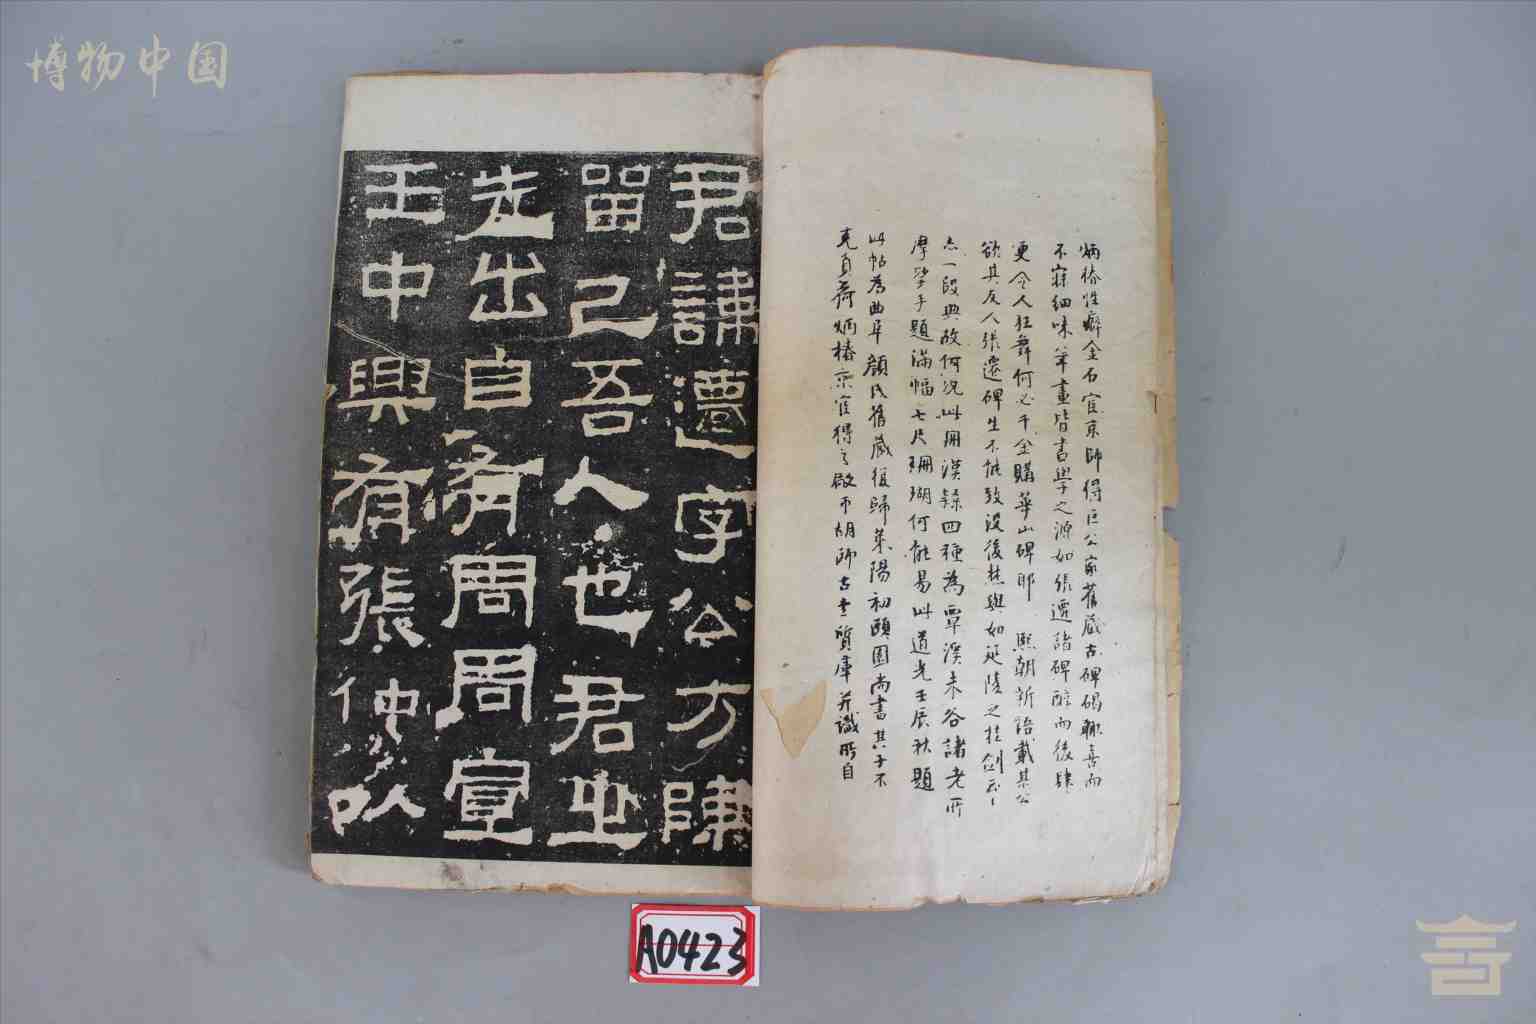 博物中国
炳椿性癖金石官京師得巨公家舊藏古碑碣輒喜而
不寐細味筆畫皆書學之源如張遷諸碑醇而後肆
更令人狂舞何必千金購華山碑耶 熙朝新語載某公
欲其友人張遷碑生不能致没後焚與如延陵之挂劍示
一段典故何況此冊漢隸四種為覃溪未谷諸老所
摩挲手題滿幅七尺珊瑚何能易此道光壬辰秋題
此帖為曲阜顏氏舊藏後歸萊陽初頤園尚書其子不
克負荷炳椿京官得之廠市胡師古老質庫并識所自
君諱遷字公方陳
留己吾人也君之
先出自有周周宣
王中興有張仲以
A0423